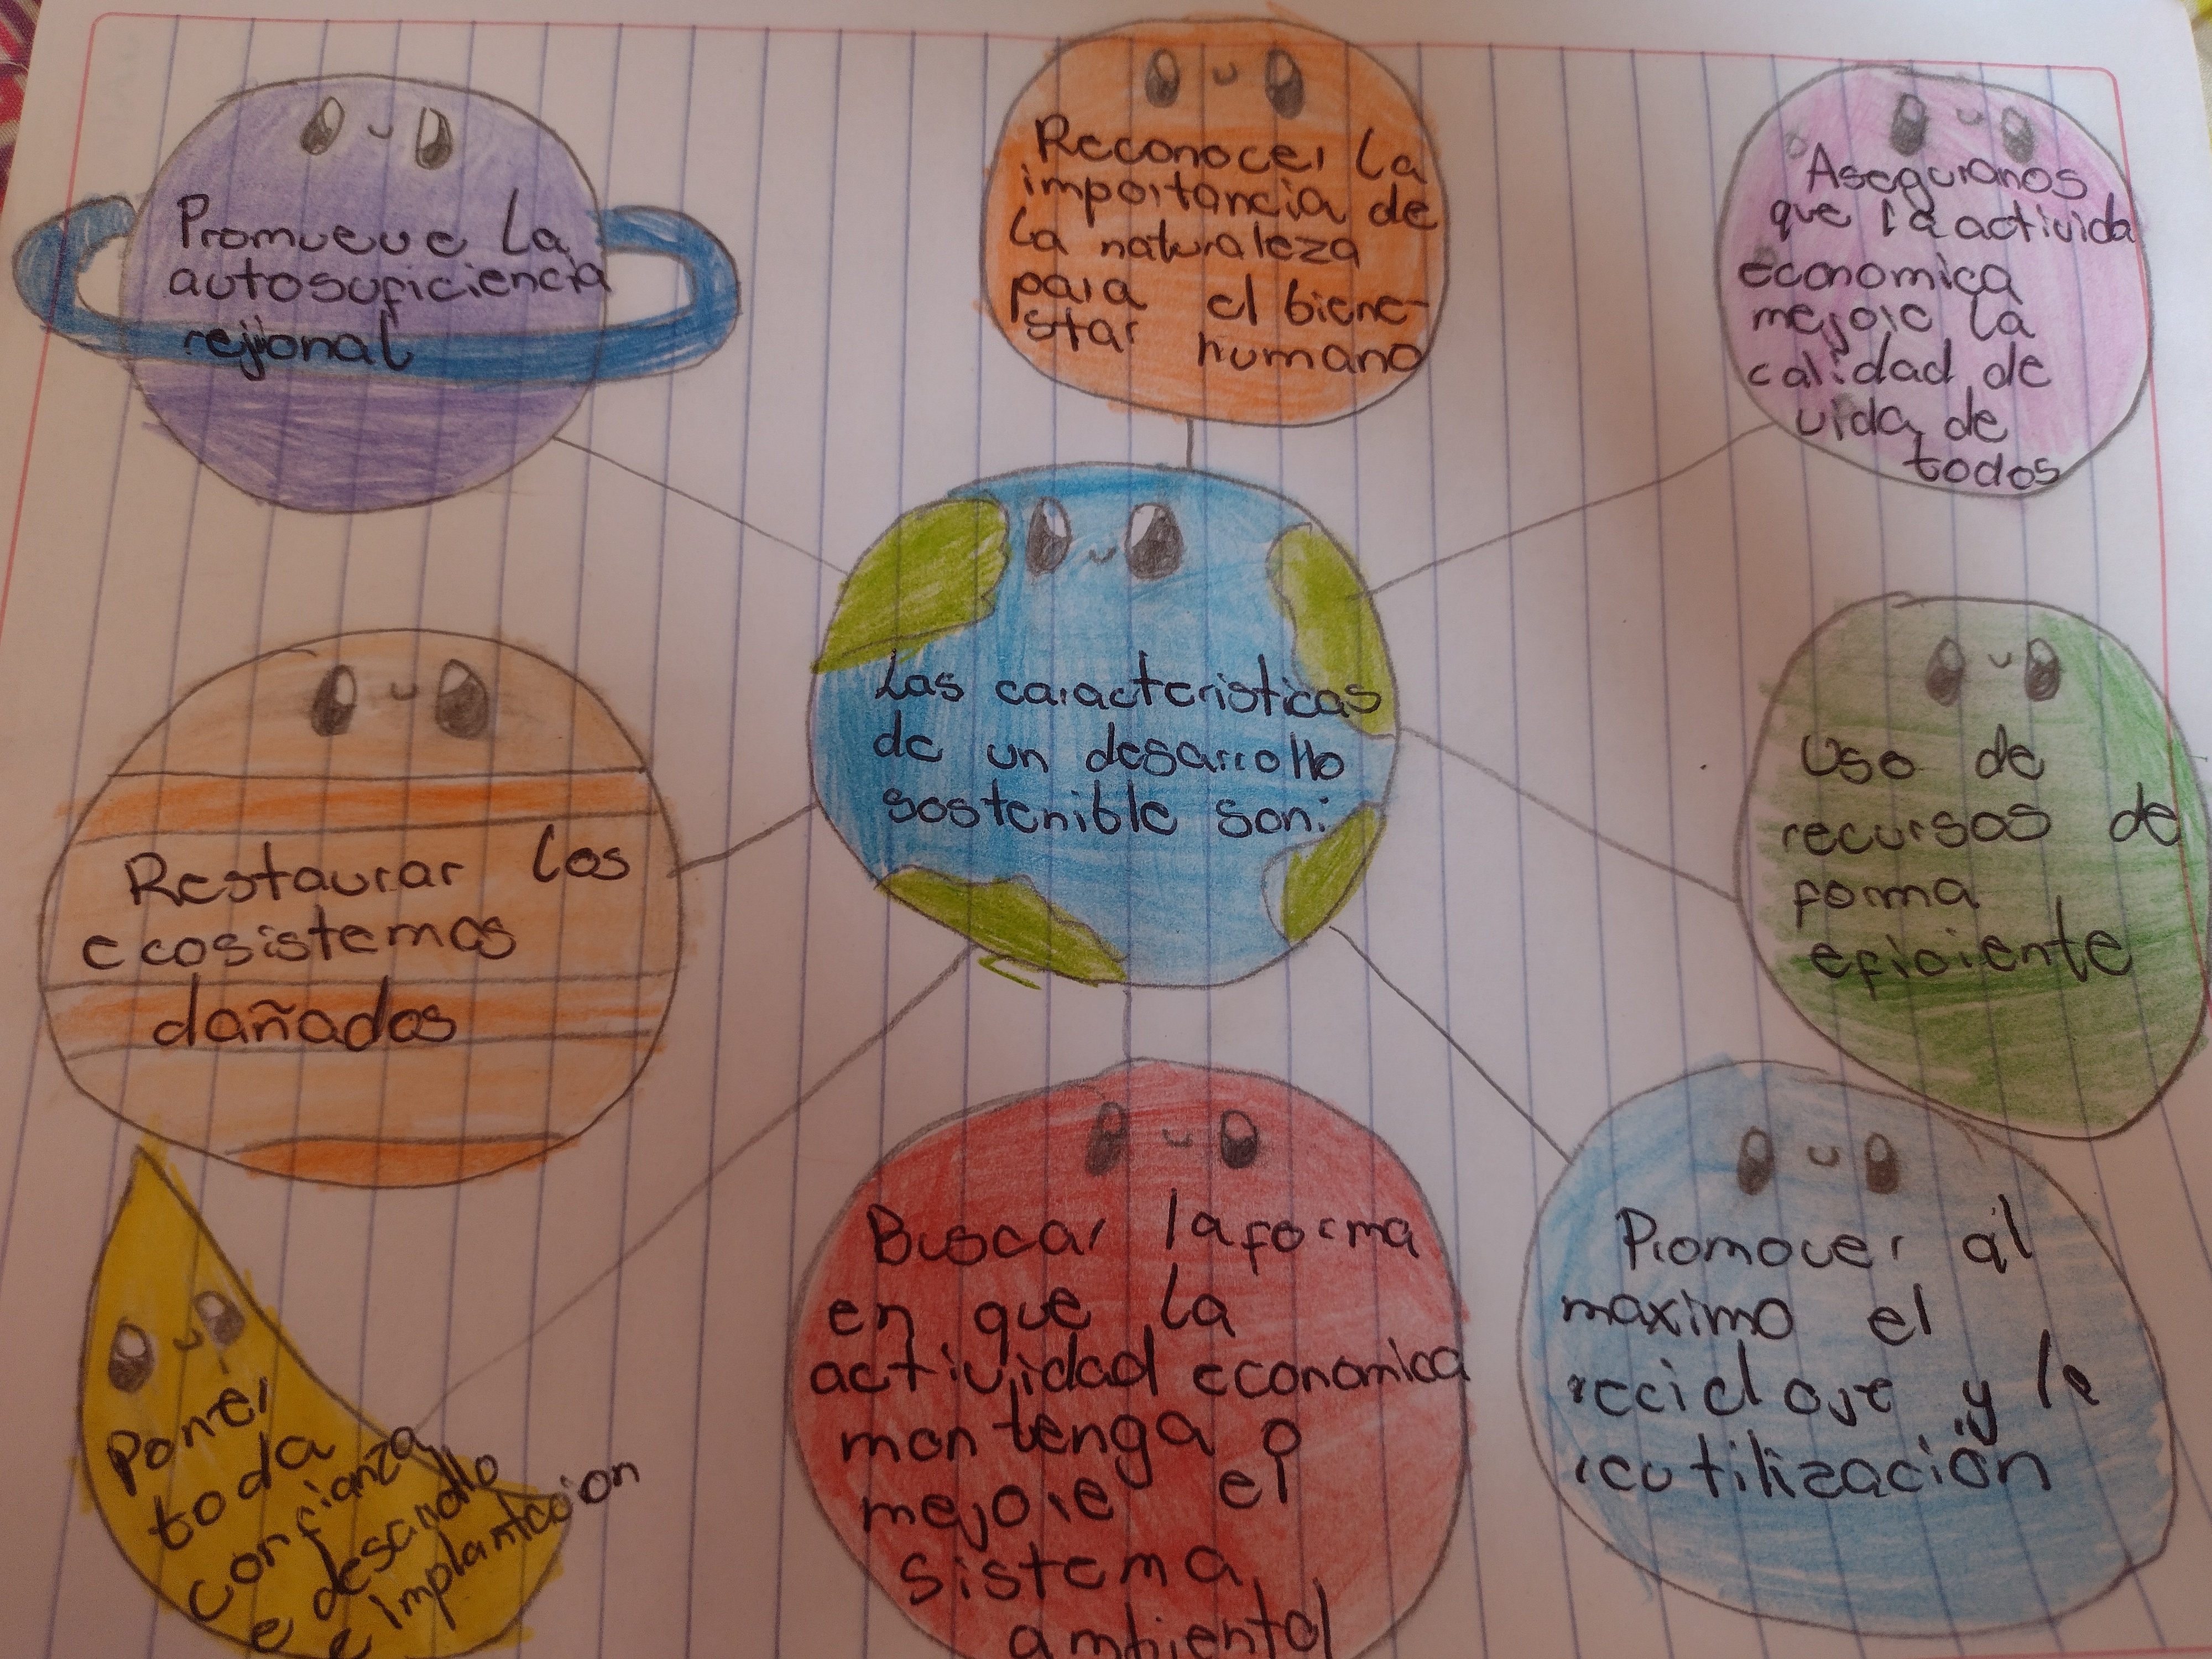 Promueve la
autosuficiencia
rejional
Reconocer la
importancia de
la naturaleza
para el biene-
star humano
Aseguranos
que la activida
economica
mejore la
calidad de
vida de
todos
Las caracteristicas
de un desarrollo
sostenible son:
Restaurar los
ecosistemas
dañados
Uso de
recursos de
forma
eficiente
Poner
toda
confianza
e desarrollo
e implantación
Buscar la forma
en que la
actividad economica
mantenga o
mejore el
sistema
ambiental
Promover al
maximo el
reciclaje y la
reutilización